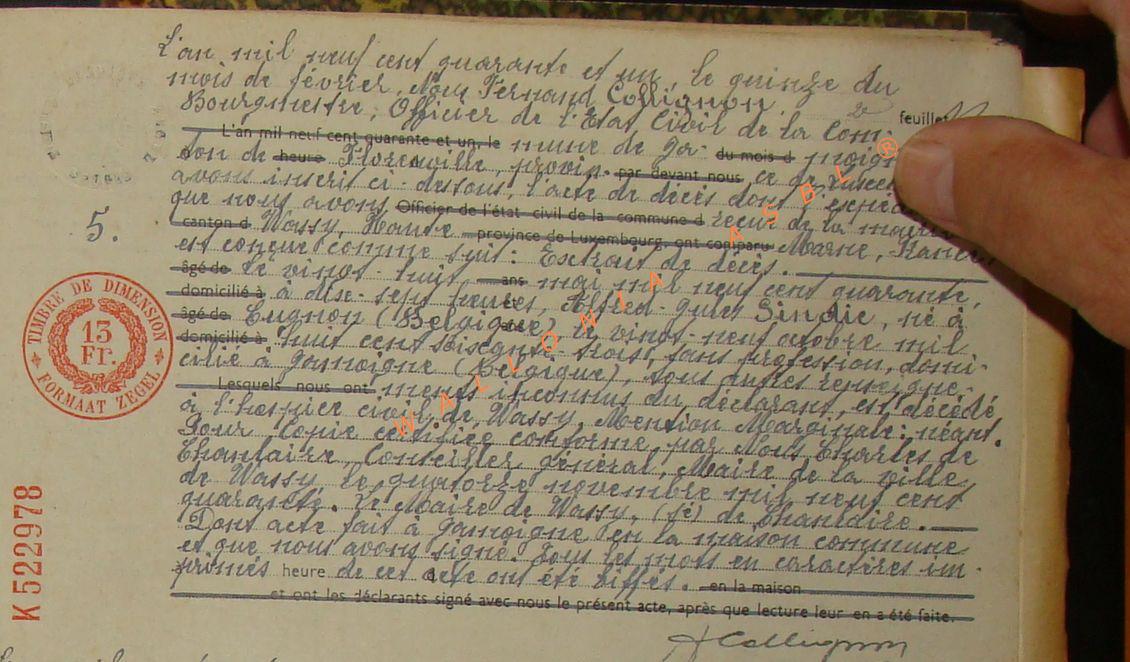 L'an mil neuf cent quarante et un, le quinze du
mois de février, Nous Fernand Collignon,
Bourgmestre, Officier de l'Etat Civil de la Com- 2e feuillet
L'an mil neuf cent quarante et un, le mune de Ja- du mois d moigne
ton de heure Florenville, provin- par devant nous ce de
avons inscrit ci-dessous, l'acte de décès dont
que nous avons Officier de l'état civil de la commune d reçue de la mairie
canton d Wassy, Haute province de Luxembourg, ont comparu Marne, France,
est conçue comme suit: Extrait de décès.
âgé de Le vingt-huit ans mai mil neuf cent quarante,
domicilié à à dix-sept heures, Alfred Sindic, né à
âgé de Cugnon (Belgique) le vingt-neuf octobre mil
domicilié à huit cent soixante-trois, sans profession, domi-
cilié à Jamoigne (Belgique), sous autres renseigne-
Lesquels nous ont ments inconnus du déclarant, est décédé
à l'hospice civil de Wassy. Mention Marginale: néant.
Pour copie certifiée conforme, par Nous Charles de
Chanlaire, Conseiller général, Maire de la ville
de Wassy le quatorze novembre mil neuf cent
quarante. Le Maire de Wassy, (sé) de Chanlaire.
Dont acte fait à Jamoigne en la maison commune
et que nous avons signé. Tous les mots en caractères im-
primés heure de cet acte ont été biffés. en la maison
et ont les déclarants signé avec nous le présent acte, après que lecture leur en a été faite.
Collignon
5.
TIMBRE DE DIMENSION
13
Fr.
FORMAAT ZEGEL
K 522978
WALLONIA ASBL ®